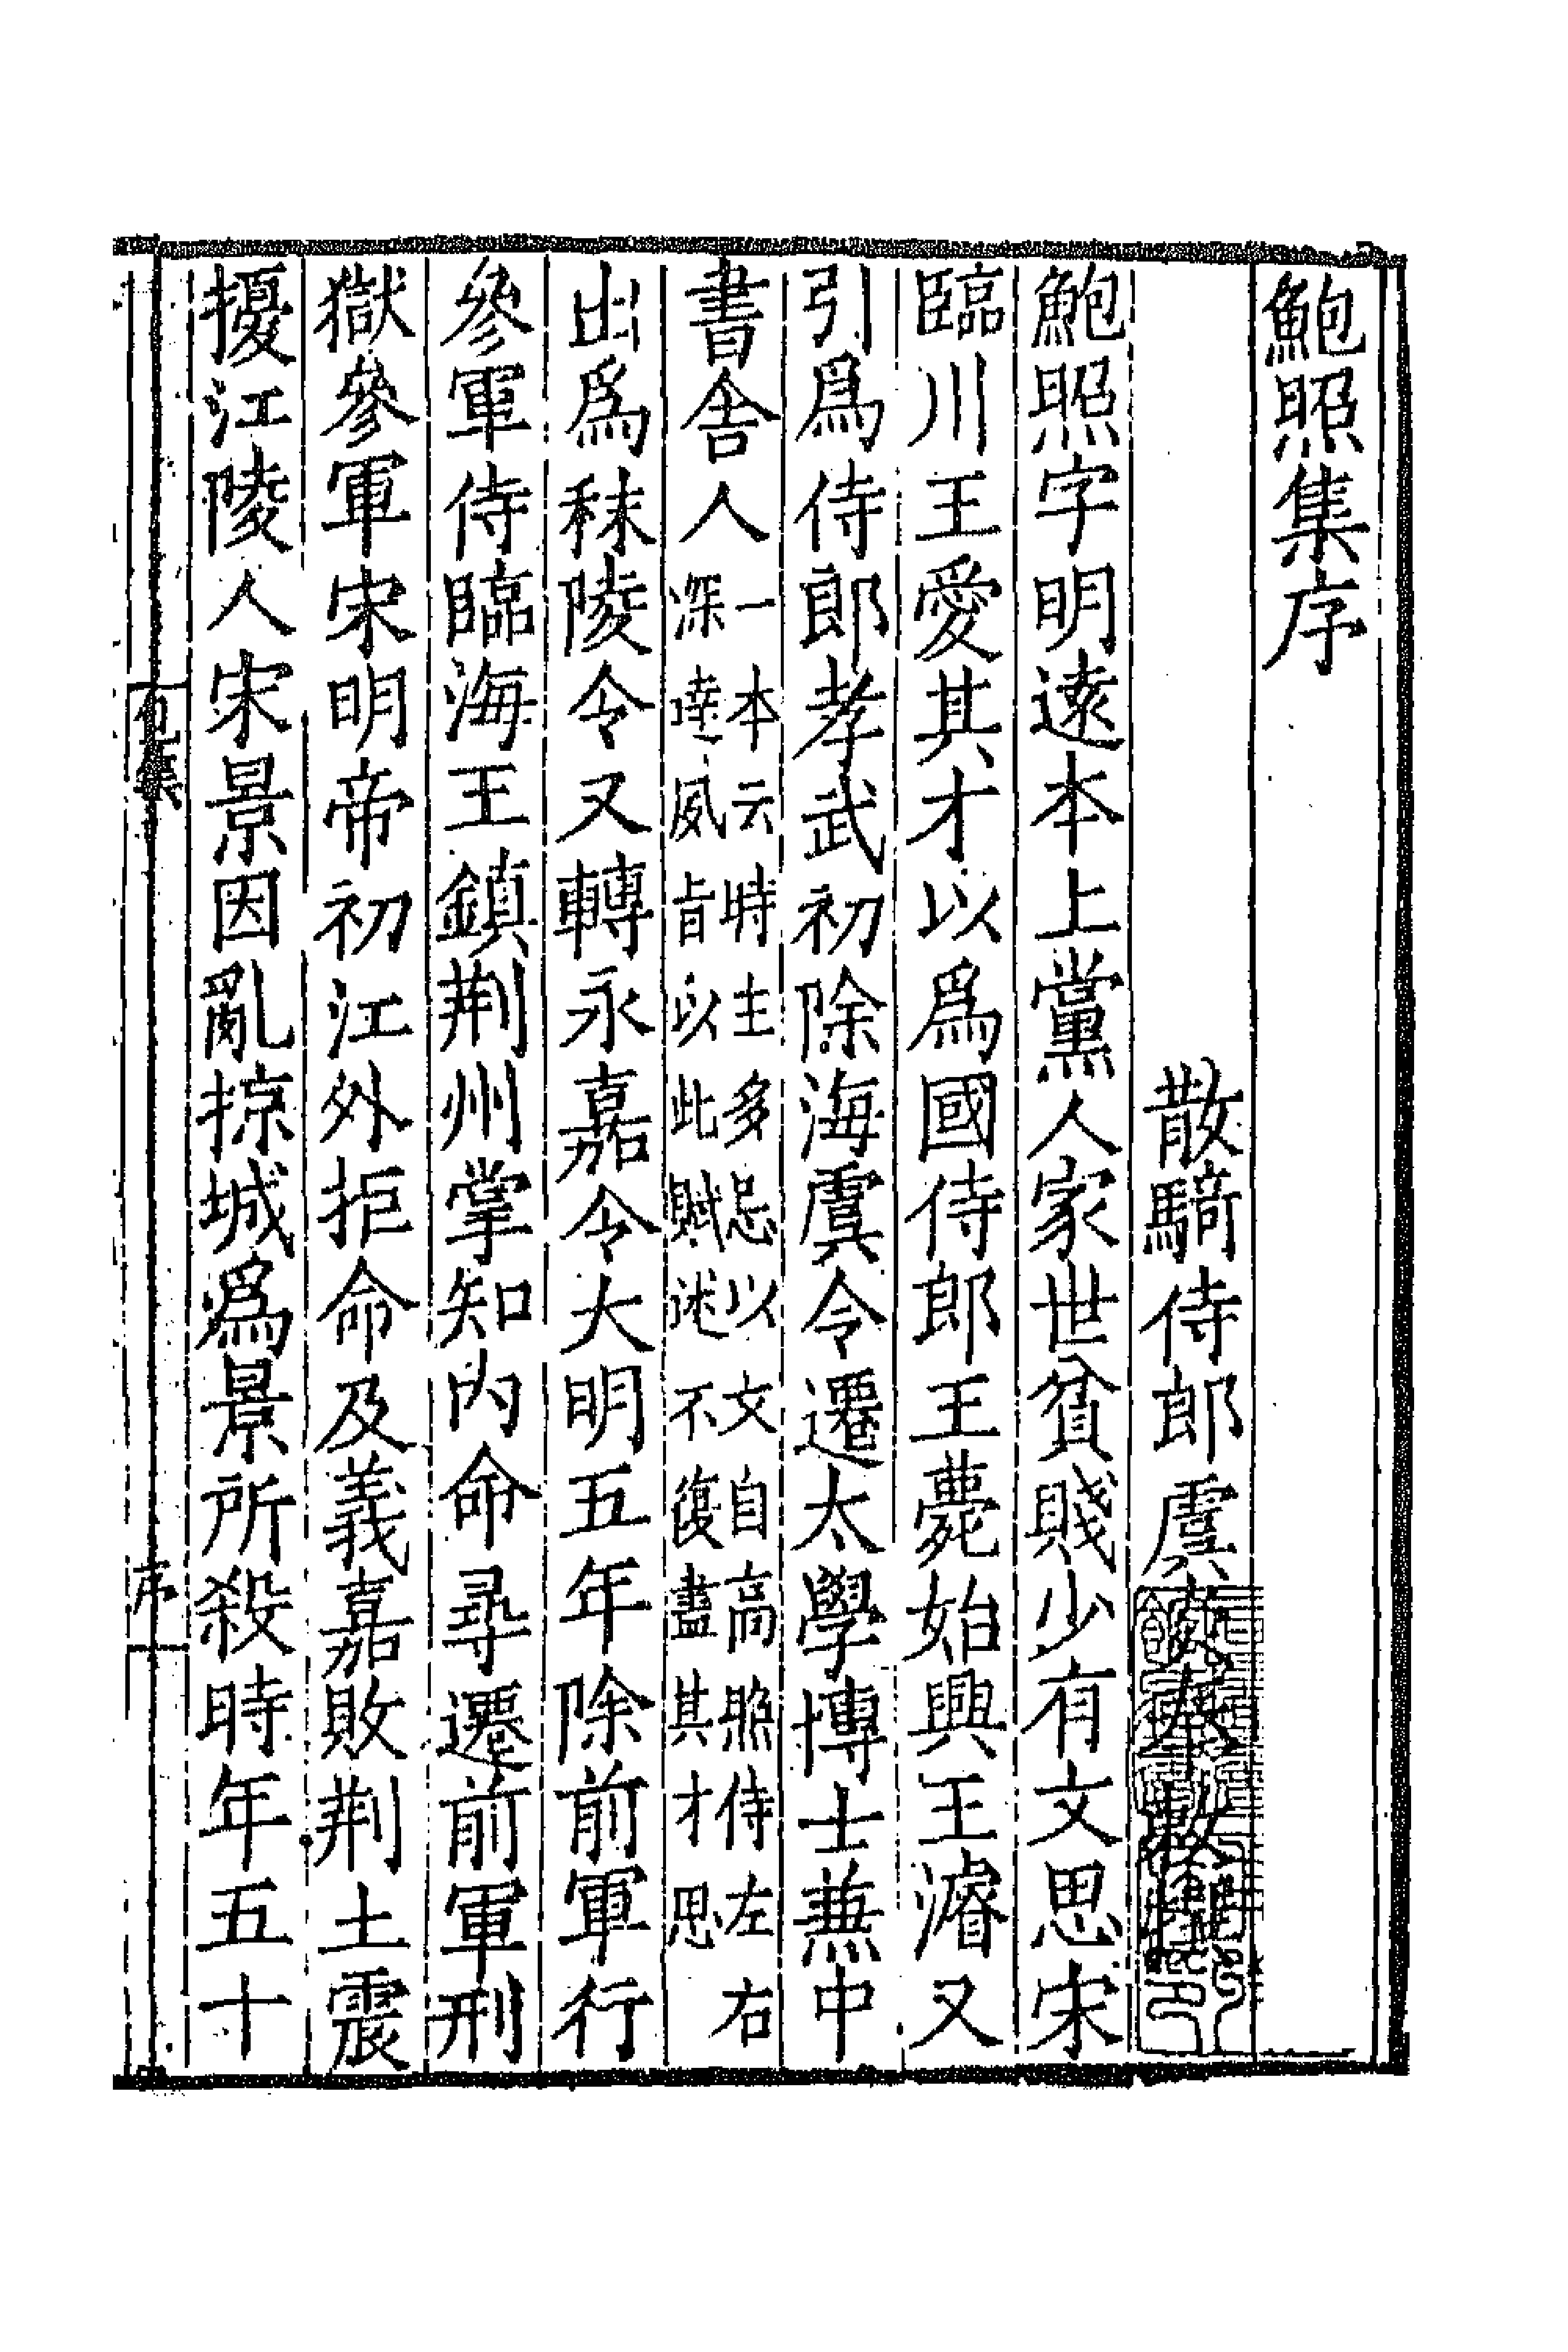 鮑照集序
散騎侍郎虞炎奉敕撰
鮑照字明遠本上黨人家世貧賤少有文思宋
臨川王愛其才以爲國侍郎王薨始興王濬又
引爲侍郎孝武初除海虞令遷太學博士兼中
書舍人一本云時主多忌以文自高照侍左右
深達風旨以此賦述不復盡其才思
出爲秣陵令又轉永嘉令大明五年除前軍行
參軍侍臨海王鎮荆州掌知内命尋遷前軍刑
獄參軍宋明帝初江外拒命及義嘉敗荆土震
擾江陵人宋景因亂掠城爲景所殺時年五十
包集
序
一